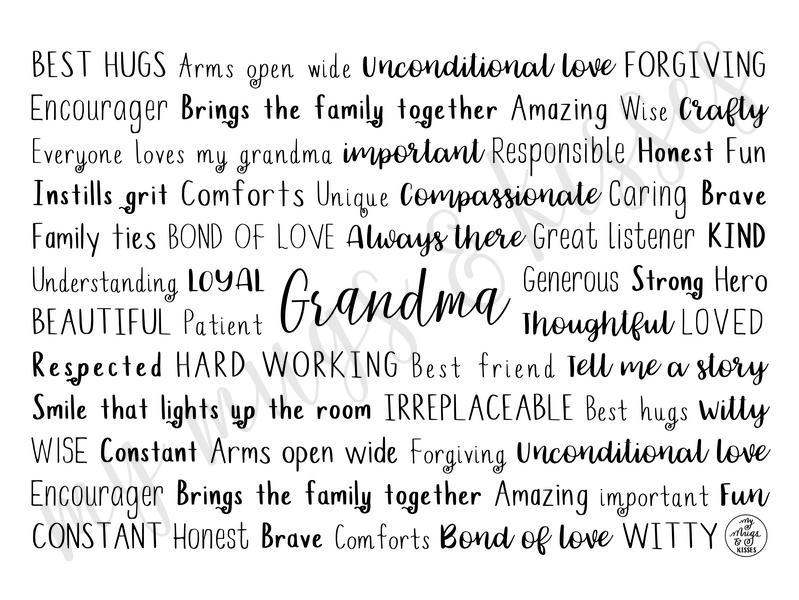 BEST HUGS Arms open wide Unconditional love FORGIVING
Encourager Brings the family together Amazing Wise Crafty
Everyone loves my grandma important Responsible Honest Fun
Instills grit Comforts Unique Compassionate Caring Brave
Family ties BOND OF LOVE Always there Great listener KIND
Understanding LOYAL Generous Strong Hero
Grandma
BEAUTIFUL Patient Thoughtful LOVED
Respected HARD WORKING Best friend Tell me a story
Smile that lights up the room IRREPLACEABLE Best hugs Witty
WISE Constant Arms open wide Forgiving Unconditional love
Encourager Brings the family together Amazing important Fun
CONSTANT Honest Brave Comforts Bond of love WITTY
my
Mugs
&
KISSES
my mugs & kisses